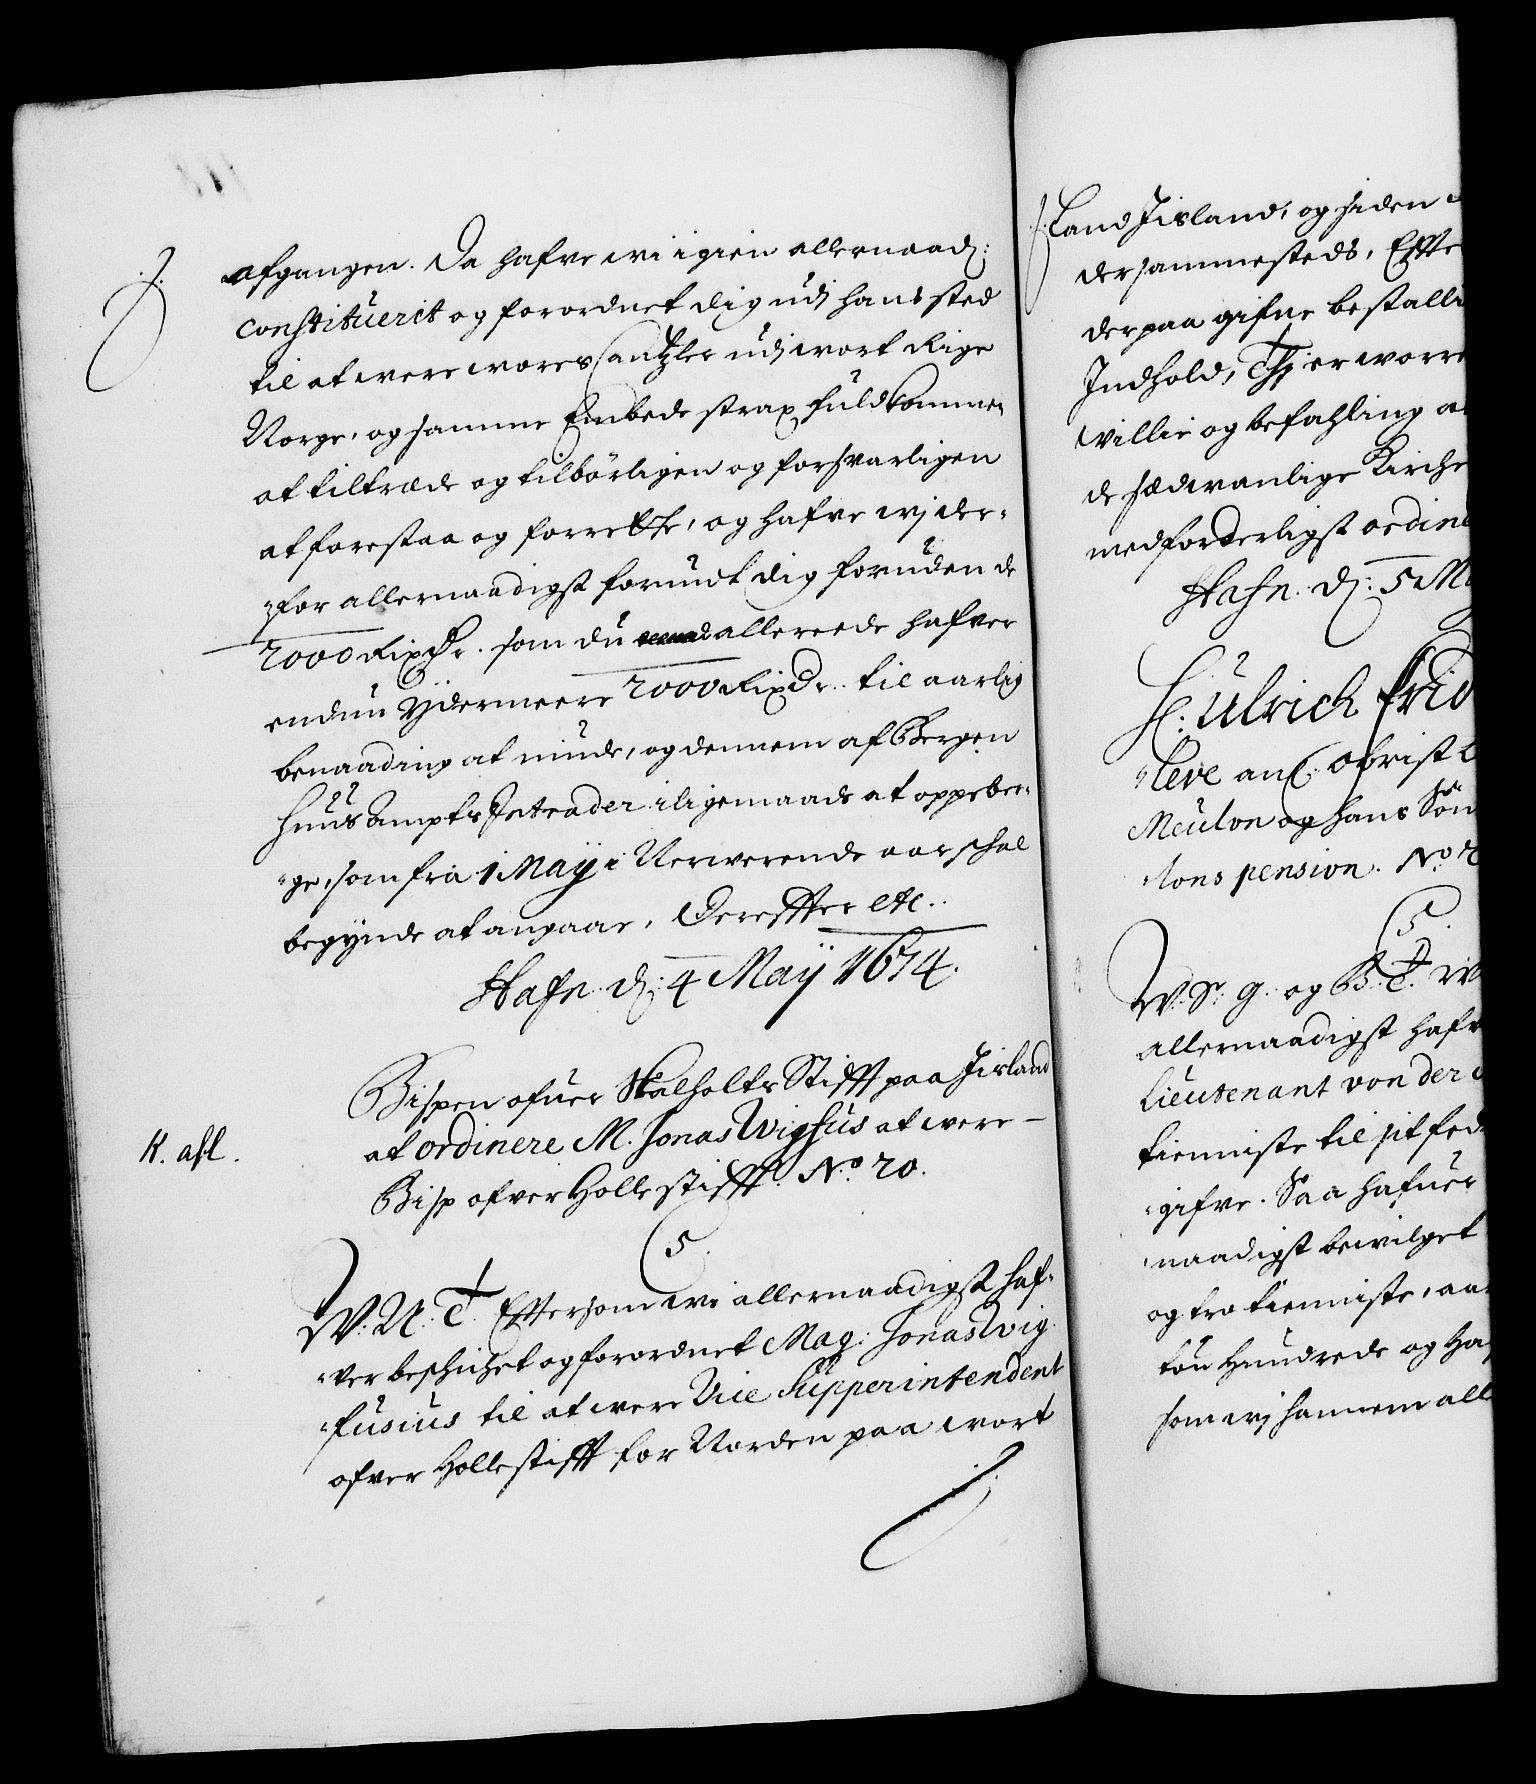 afgangen. Da hafve wi igien allernaad:
constituerit og forordnet dig udj hans sted
til at were wores Cantzler udj wort Rige
Norge, og samme Embede strax fuldkommen
at tiltræde og tilbörligen og forsvarligen
at forestaa og forrette, og hafve wj der=
for allernaadigst forundt dig foruden de
2000 Rixdr. som du allereede hafver
endnu ÿdermeere 2000 Rixdr. til aarlig
benaading at niude, og dennem af Bergen
huus Ampts Intrader iligemaade at oppebær=
ge, som fra 1 Maÿ i Nerwerende aar schal
begÿnde at angaar, Derefter etc.
Hafn. d: 4 Maÿ 1674.
Bispen ofuer Skalholts Stifft paa Jisland
at ordinere M. Jonas Wigfus at were
K. afl.
Bisp ofver Holle stifft. No. 20.
5.
W: U: T. Eftersom wi allernaadigst haf=
ver beschichet og forordnet Mag: Jonas Wig=
fusius til at were Vice Supperintendent
ofver Hollestifft for Norden paa wort
Land Jisland, og siden
dersammesteds, Effte
derpaa gifne bestalli
Indhold, Thj er worre
willie og befahling a
de sædwanlige Kirche
medforderligst ordine
Hafn. d: 5 M
H: Ulrich Frid
leve an: obrist L
Meulon og hans Sön
lons pension. No. 2
5.
W: S: G: og B: T. wi
allernaadigst hafv
Lieutenant von der
tienniste til sit fed
gifve. Saa hafuer
naadigst bewilget
og tro tienniste, aa
tou Hundrede og Ha
som wj hannem alle